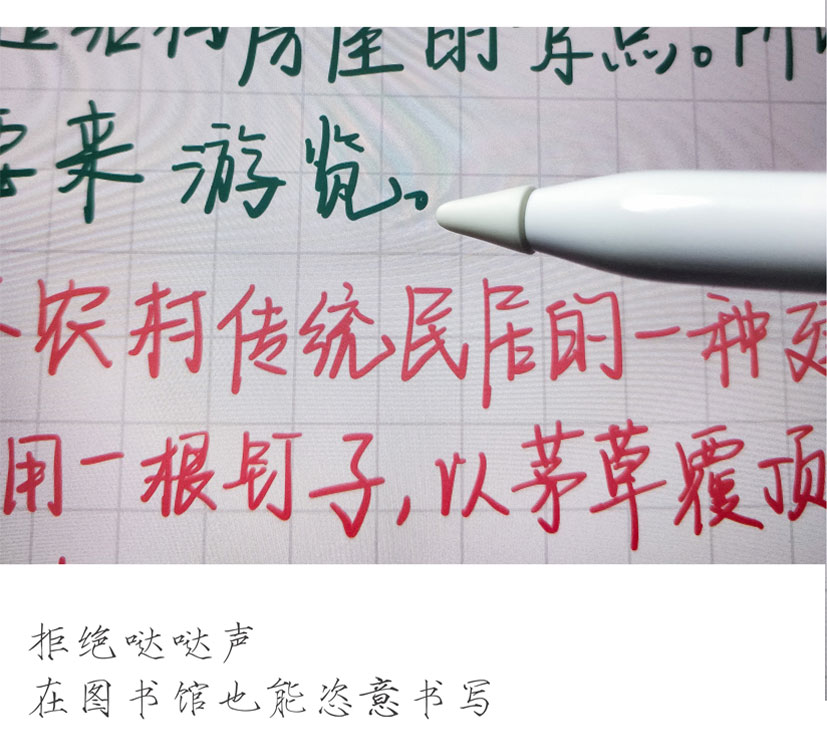 房屋的特点。所
要来 游览。
农村传统民居的一种
用一根钉子,以茅草覆顶
拒绝哒哒声
在图书馆也能恣意书写